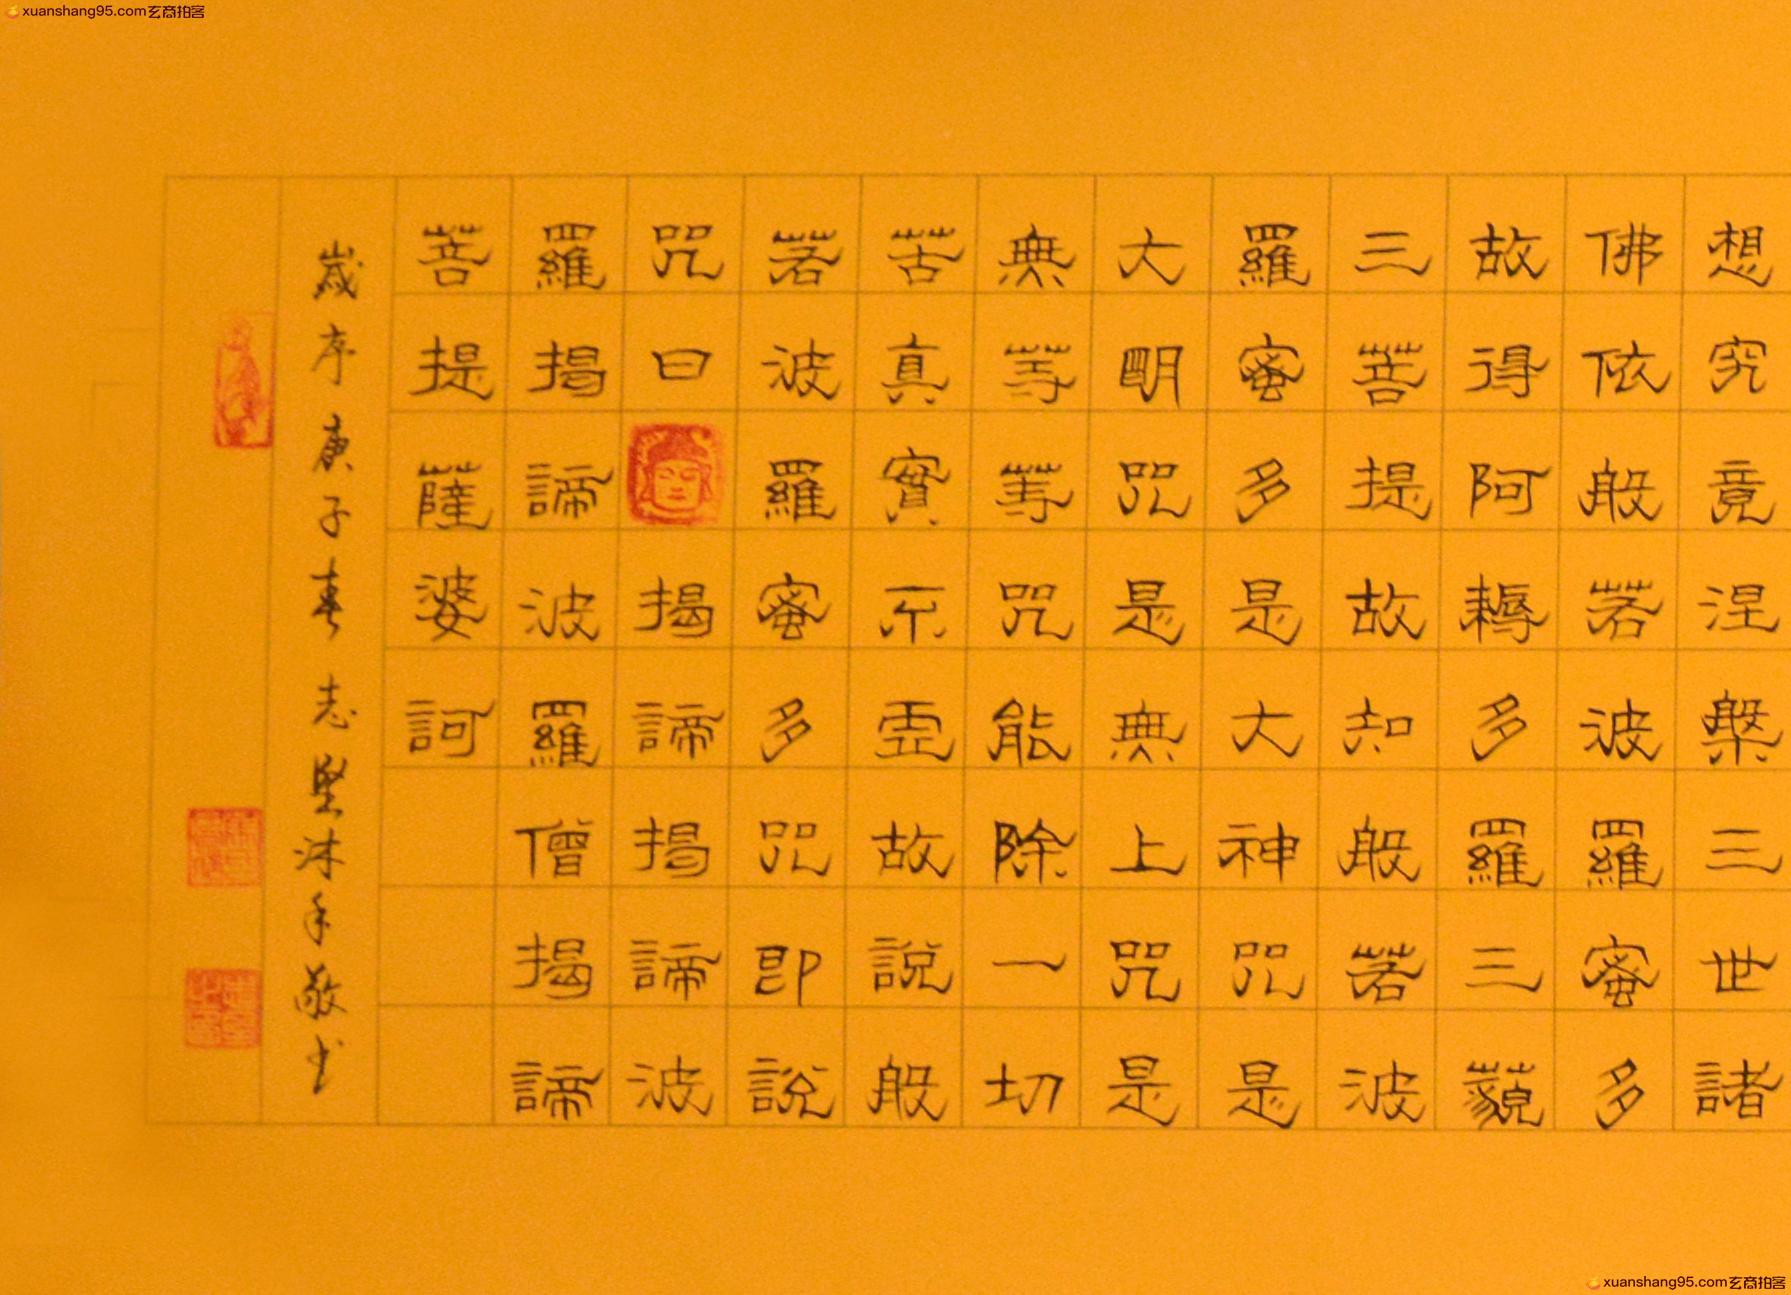 xuanshang95.com玄商拍客
想究竟涅槃三世諸
佛依般若波羅蜜多
故得阿耨多羅三藐
三菩提故知般若波
羅蜜多是大神咒是
大明咒是無上咒是
無等等咒能除一切
苦真實不虛故說般
若波羅蜜多咒即說
咒曰揭諦揭諦波
羅揭諦波羅僧揭諦
菩提薩婆訶
歲序庚子春志堅沐手敬書
xuanshang95.com玄商拍客